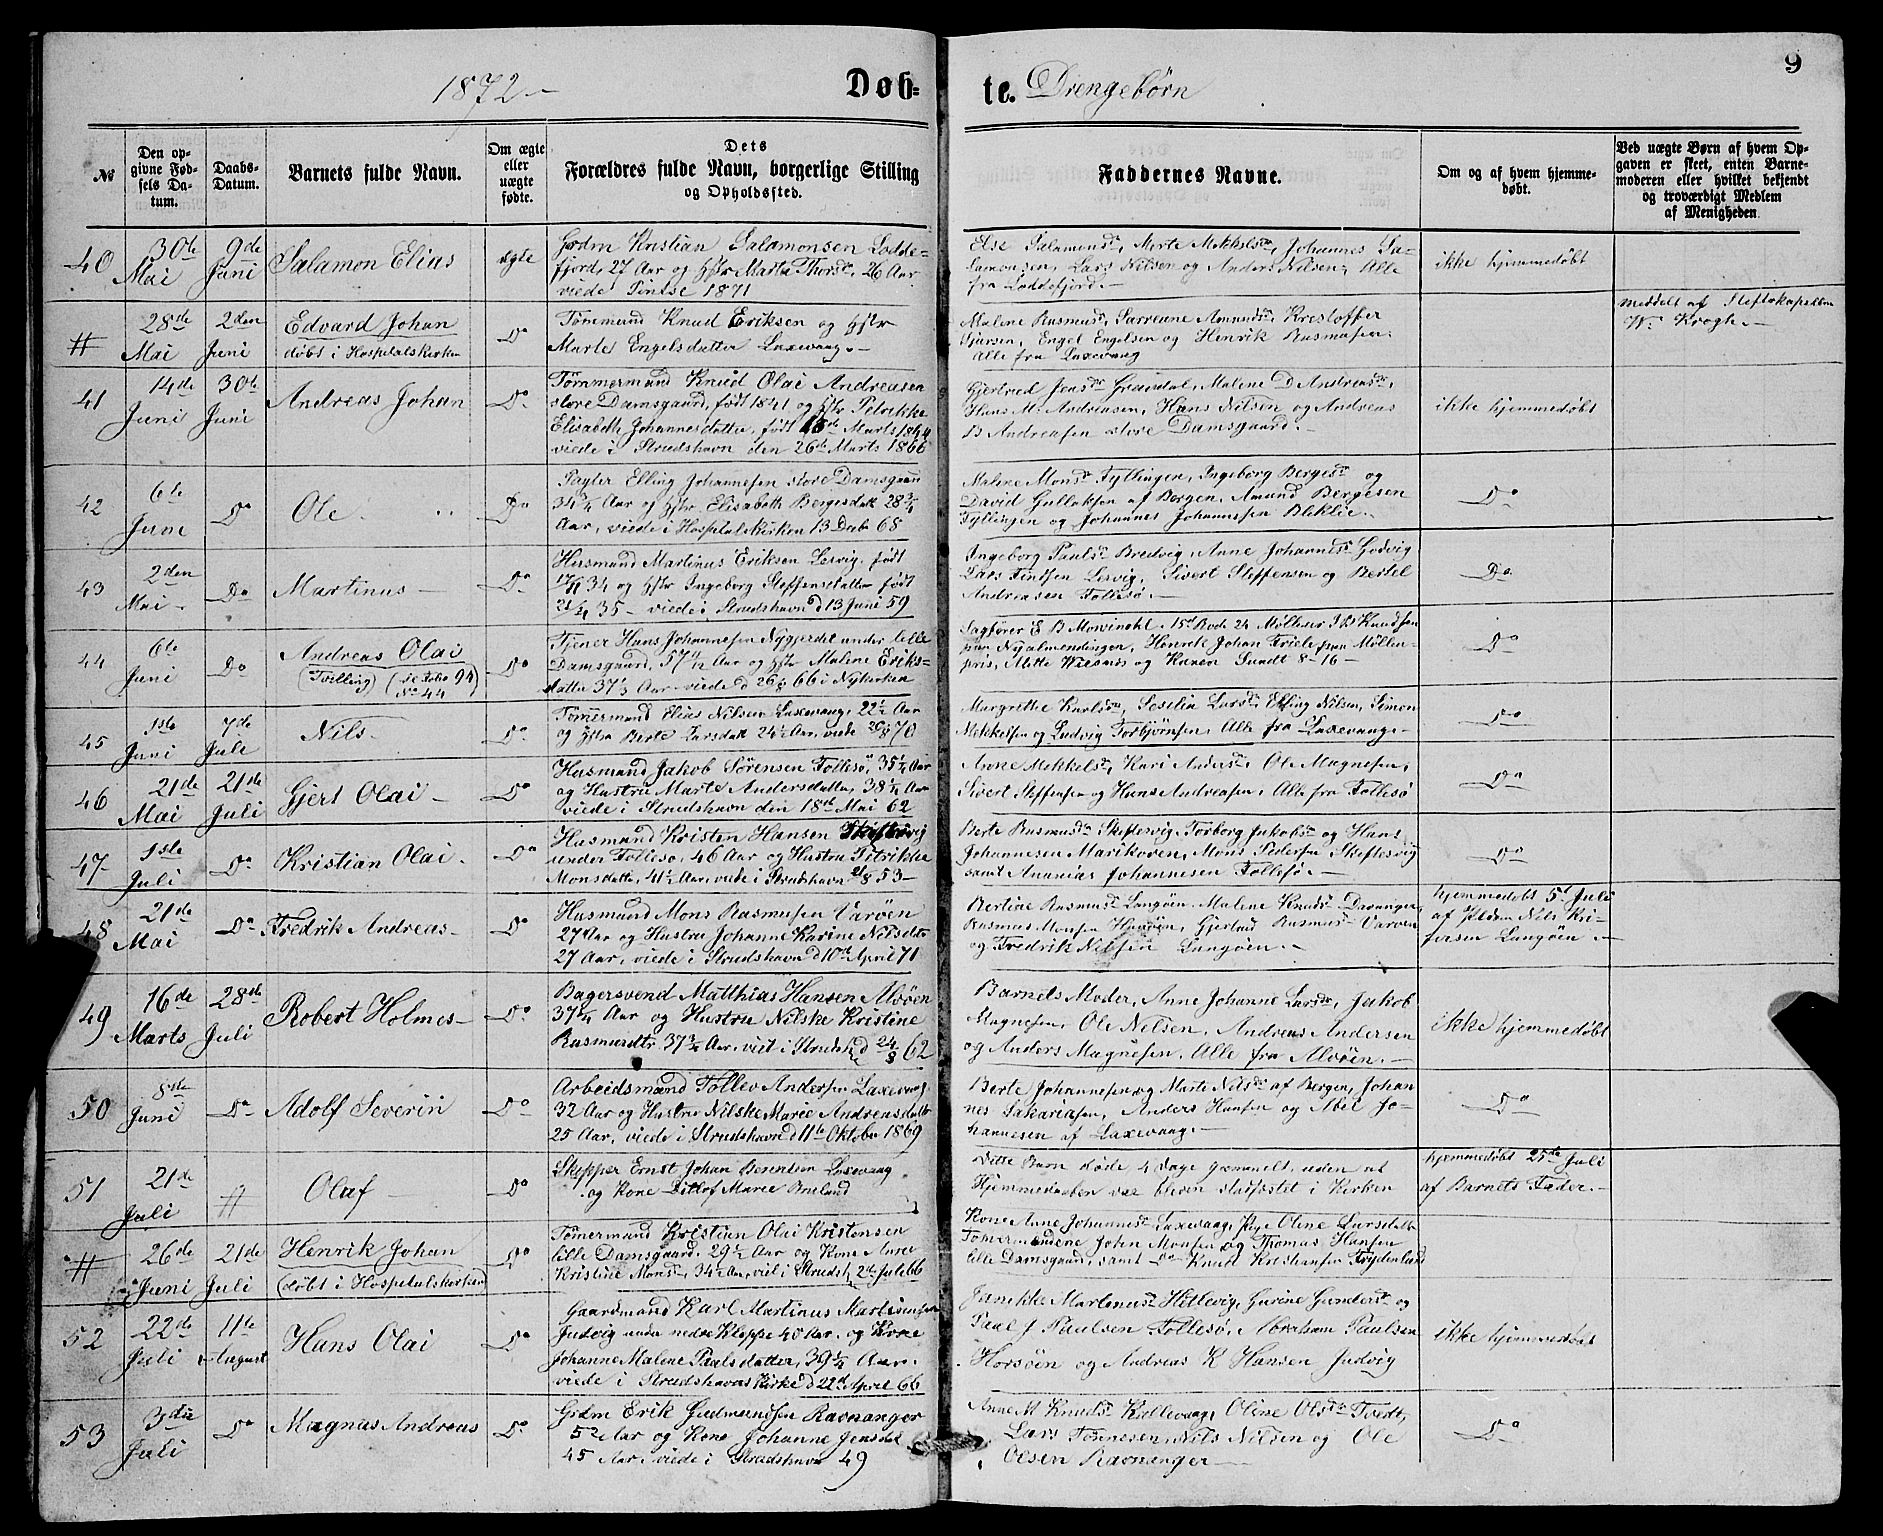 9
1872 –
Døb=
te. Drengebørn
№
Den op-
givne Fød-
sels Da-
tum.
Daabs-
Datum.
Barnets fulde Navn.
Om ægte
eller
uægte
fødte.
Dets
Forældres fulde Navn, borgerlige Stilling
og Opholdssted.
Faddernes Navne.
Om og af hvem hjemme-
døbt.
Ved uægte Børn af hvem Op-
gaven er skeet, enten Barne-
moderen eller hvilket bekjendt
og troværdigt Medlem
af Menigheden.
40
30te
Mai
9de
Juni
Salamon Elias
ægte
Grdm Kristian Salamonsen Lodde-
fjord, 27 Aar og Hstr Marta Thorsdr 26 Aar
viede 1871
Else Salamonsdr, Marte Mekkelsdr, Johannes Sa-
lamonsen, Lars Nilsen og Anders Nilsen, Alle
fra Loddefjord. –
ikke hjemmedøbt
#
28de
Mai
2den
Juni
Edvard Johan
døbt i Hospitalskirken
Do
Tømmermand Knud Eriksen og Hstr
Marte Engelsdatter Laxevaag. –
Malene Rasmusdr, Amundsdr, Krestoffer
Engel Engelsen og Henrik Rasmusen.
Alle fra Laxevaag
meddelt af Stiftskapellan
W. Krogh. –
41
14de
Juni
30te
Juni
Andreas Johan
Do
Tømmermand Knud Olai Andreasen
store Damsgaard, født 1841 og Hstr Petrikke
Elisabeth Johannesdatter, født Marts 1844
viede i Strudshavn den 26de Marts 1866
Gjertrud Jensdr Malene D Andreasdr,
Hans M. Andreasen, Hans Nilsen og Andreas
B Andreasen store Damsgaard. –
ikke hjemmedøbt
42
6te
Juni
Do
Ole.
Do
Elling Johannesen store Damsgaard
34 3/4 Aar og Hstr Elisabeth Bergesdatt 28 3/4
Aar, viede i Hospitalskirken 13 Decb 68
Malene Monsdr Fyllingen, Ingeborg Bergesdr og
David Gullaksen af Bergen, Amund Bergesen
Fyllingen og Johannes Johannesen Bleklie. –
Do
43
2den
Mai –
Do
Martinus –
Do
Husmand Martinus Eriksen Lervig, født
34 og Hstr Ingeborg Steffensdatter født
35 – viede i Strudshavn d 13 Juni 59
Ingeborg Paulsdr Bredvig, Anne Johannesdr Godvig
Lars Lervig, Sivert Steffensen og Bertel
Andreasen Follesø. –
Do
44
6te
Juni
Do
Andreas Olai
(Tvilling) (se Folio 94
No 44)
Do
Tjener Hans Johannesen Nygjerdet under lille
Damsgaard, 57 Aar og Hstr Malene Eriks-
datter 37 1/3 Aar – viede d 66 i Nykirken
Sagfører E B Mowinckel, 15de Rode 24 Knudsen
paa Nyalmendingen, Henrik Johan Friele paa Møllen-
pris, Mette og Karen Sundt 8 – 16 –
Do
45
1ste
Juni
7de
Juli
Nils –
Do
Tømmermand Elias Nilsen Laxevaag, 22 1/2 Aar
og Hstru Berte Larsdatt 24 1/2 Aar, viede 70
Margrethe Karlsdr, Seselia Larsdr Elling Nilsen, Simon
Mekkelsen og Ludvig Torbjørnsen, Alle fra Laxevaag. –
Do
46
21de
Mai
21de
Juli
Gjert Olai –
Do
Husmand Jakob Sørensen Follesø, 35 1/4 Aar
og Hustru Marte Andersdatter, 38 1/2 Aar
viede i Strudshavn den 18de Mai 62
Anne Mekkelsdr, Kari Andersdr, Ole Magnesen,
Sivert Steffensen og Hans Andreasen, Alle fra Follesø
Do
47
1ste
Juli
Do
Kristian Olai.
Do
Husmand Kristen Hansen Skiftesvig
under Follesø, 46 Aar og Hustru Petrikke
Monsdatter, 41 1/2 Aar, viede i Strudshavn 53 –
Berte Rasmusdr Skiftesvig, Torborg Jakobsdr og Hans
Johannesen Marikoven, Mons Pedersen Skiftesvig
samt Ananias Johannesen Follesø. –
Do
48
21de
Mai
Do
Fredrik Andreas –
Do
Husmand Mons Rasmusen Varøen
27 Aar og Hustru Johanne Karine Nilsdtr
27 Aar, viede i Strudshavn d 10de April 71
Bertine Rasmusdr Langøen, Malene Knudsdr Davanger
Rasmus Monsen Gjertrud Rasmusdr Varøen
og Fredrik Nilsen Langøen. –
hjemmedøbt 5te Juli
af Nils
Langøen. –
49
16de
Marts
28de
Juli
Robert Holmes –
Do
Bagersvend Matthias Hansen Alvøen
37 1/4 Aar og Hustru Nilske Kristine
Rasmusdtr 37 3/4 Aar, viet i Strudsh d 24/8 62
Barnets Moder, Anne Johanne Larsdr, Jakob
Magnesen, Ole Nilsen, Andreas Andersen
og Anders Magnesen. Alle fra Alvøen. –
ikke hjemmedøbt
50
8de
Juni
Do
Adolf Severin
Do
Arbeidsmand Tollev Andersen Laxevaag
32 Aar og Hustru Nilske Marie Andreasdatter
25 Aar, viede i Strudshavn d 11te Oktober 1869
Berte Johannesen og Marte Nilsdr af Bergen, Johan-
nes Sakariasen, Anders Hansen og Abel Jo-
hannesen af Laxevaag. –
Do
51
21de
Juli
#
Olaf –
Do
Skipper Ernst Johan Berentsen Laxevaag
og Kone Ditlof Marie
Dette Barn døde 4 Dage gammelt, uden at
Hjemmedaaben var bleven stadfæstet i Kirken
hjemmedøbt 25de Juli
af Barnets Fader. –
#
26de
Juni
21de
Juli
Henrik Johan
(døbt i Hospitalskirken)
Do
Tømermand Kristian Olai Kristensen
lille Damsgaard 29 1/2 Aar og Kone Anne
Kristine Monsdr, 34 1/2 Aar, viet i Strudsh 2de Juli 66
Kone Anne Johannesdr Laxevaag, Pige Oline Larsdatt
Tømermændene John Monsen og Thomas Hansen
lille Damsgaard, samt Do Knud Kristiansen Frydenlund
52
22de
Juli
11te
August
Hans Olai
Do
Gaardmand Karl Martinus Martinsen
Judvig under nedre Kleppe 40 Aar og Kone
Johanne Malene Paalsdatter, 39 1/4 Aar.
viede i Strudshavns Kirke d 22de April 66
Janikke Martinusdr Hetlevig, Gurine Gundersdr og
Paal J Paulsen Follesø, Abraham Paulsen
Horsøen og Andreas K Hansen Judvig
ikke hjemmedøbt
53
3die
Juli
Do
Magnas Andreas
Do
Grdm Erik Gudmundsen Ravnanger
52 Aar og Kone Johanne Jensdatt
45 Aar viede i Strudshavn 49
Anne M Knudsdr Oline Olsdr Tvedt,
Lars Tønnesen, Nils Nilsen og Ole
Olsen Ravnanger –
Do